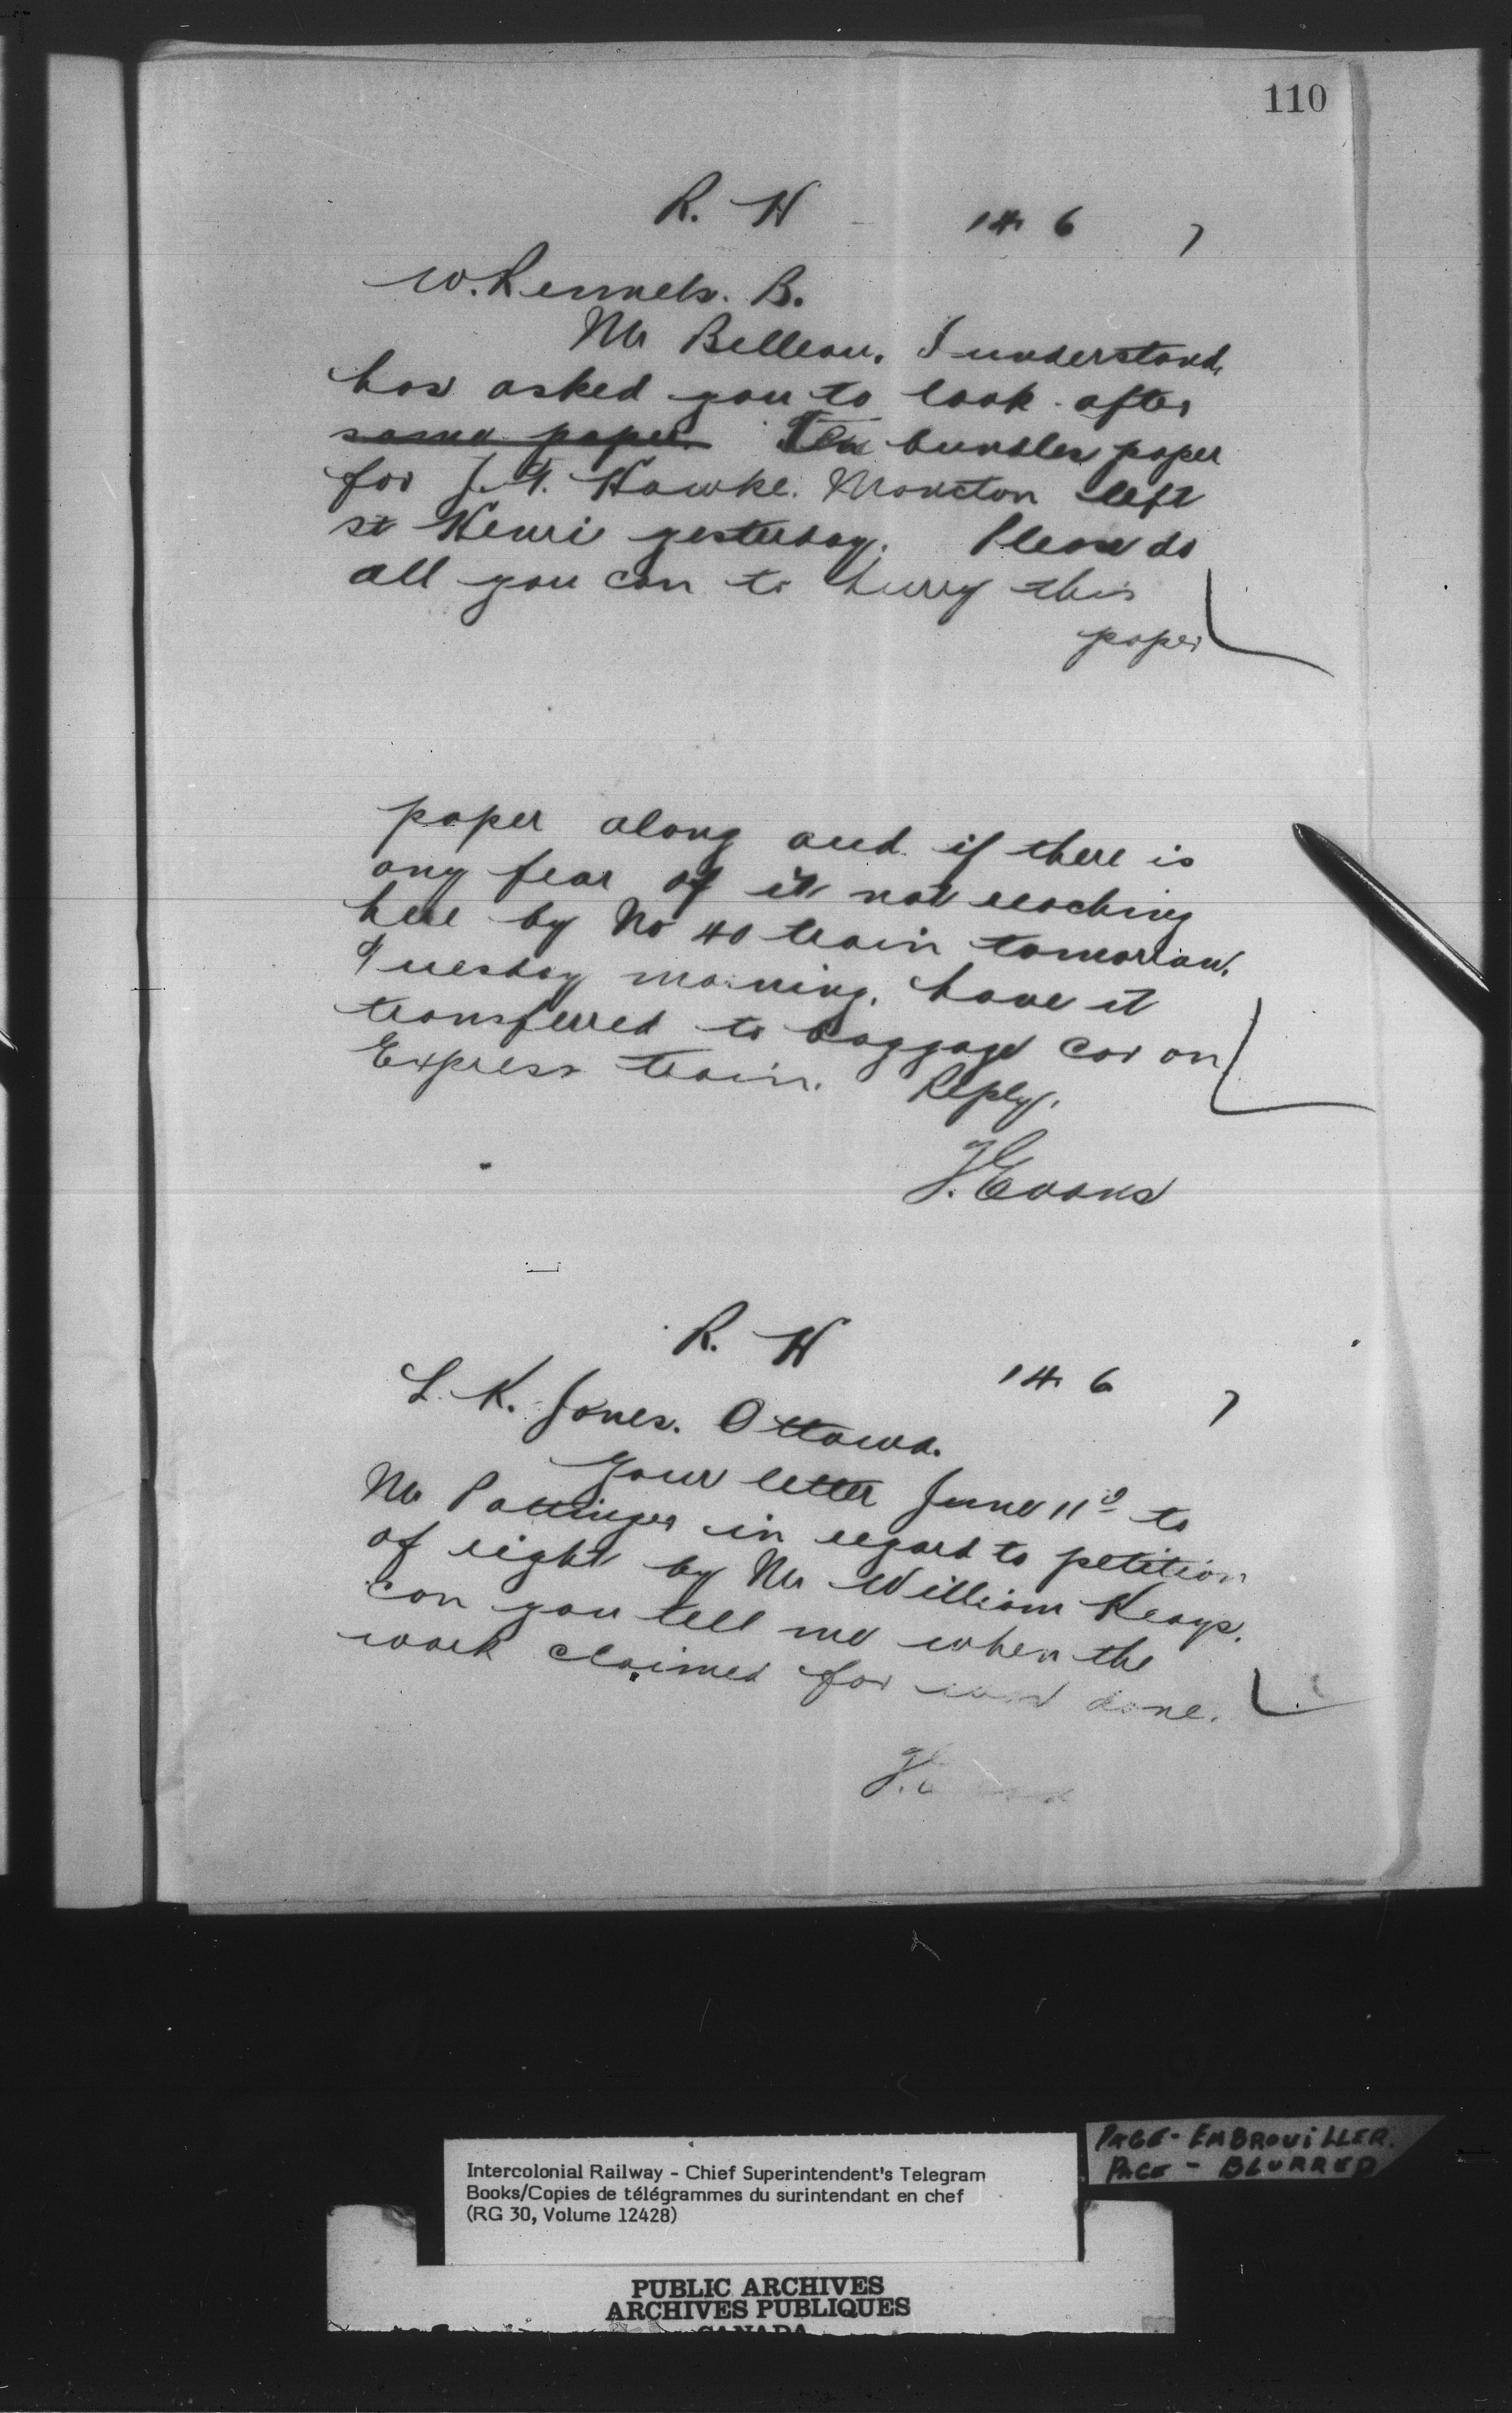 110
R. H 14 6 7
W. Rennels. B.
Mr Belleau. I understand,
has asked you to look after
some paper. Ten bundles paper
for J. T. Hawke. Moncton left
St Henri yesterday. Please do
all you can to hurry this
paper
paper along and if there is
any fear of it not reaching
here by No 40 train tomorrow,
Tuesday morning, have it
transferred to baggage car on
Express train. Reply.
T. Evans
R. H 14 6 7
L. K. Jones. Ottawa.
Your letter June 11th to
Mr Pottinger in regard to petition
of right by Mr William Keays.
can you tell me when the
work claimed for was done.
PAGE - EMBROUILLER.
PAGE - BLURRED
Intercolonial Railway - Chief Superintendent's Telegram
Books/Copies de télégrammes du surintendant en chef
(RG 30, Volume 12428)
PUBLIC ARCHIVES
ARCHIVES PUBLIQUES
CANADA